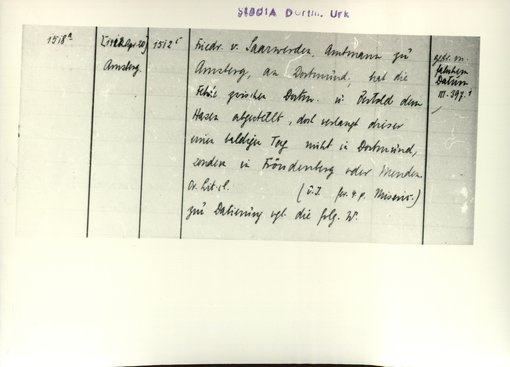 Stadta Dortm. Urk
1518ª [nach Apr. 20] 1512ᶜ Friedr. v. Saarwerden, Amtmann zu gedr. m.
Arnsberg. Arnsberg, an Dortmund, hat die falschem
Fehde zwischen Dortm. u. Bertolde dem Datum
Hasen abgestellt, doch verlangt dieser III. 397.
einen baldigen Tag nicht in Dortmund,
sondern in Fröndenberg oder Menden
Or. Lit. cl. (u. I. fer. 4 p. Miseric.)
zur Datierung vgl. die folg. N.